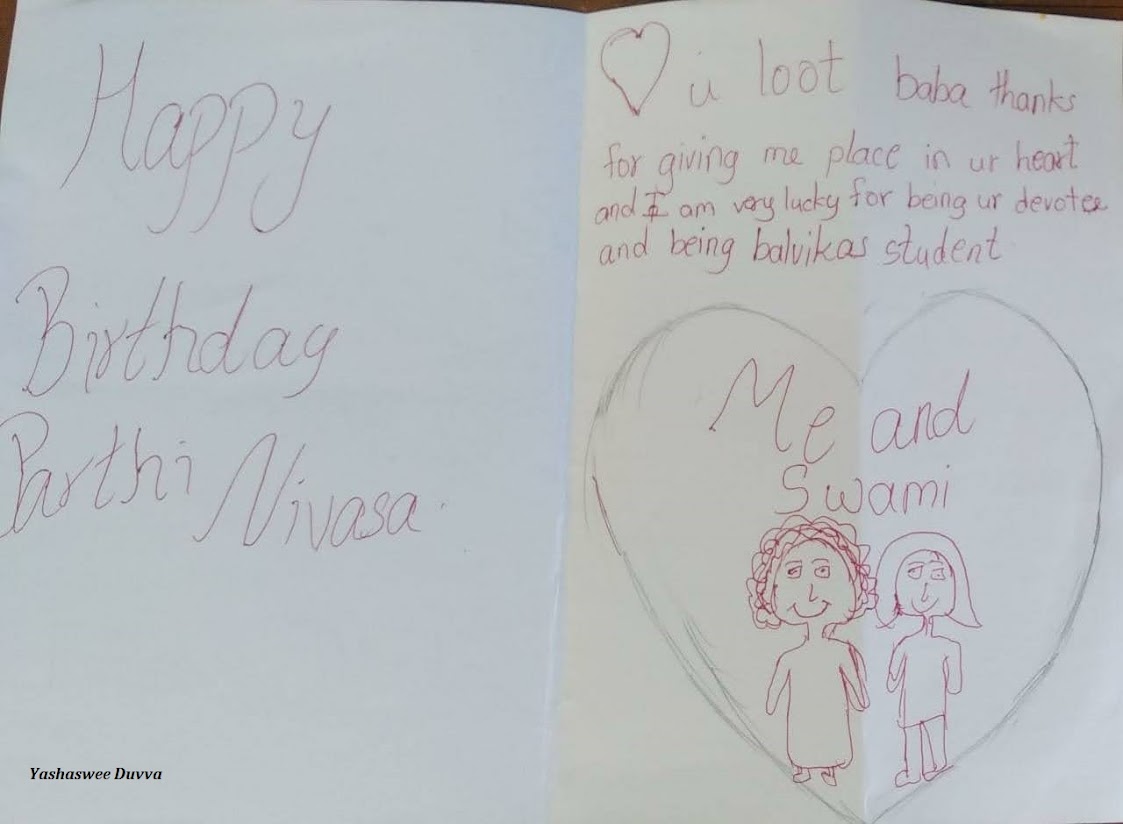 Happy
Birthday
Parthi Nivasa.
u loot baba thanks
for giving me place in ur heart
and I am very lucky for being ur devotee
and being balvikas student
Me and
Swami
Yashaswee Duvva